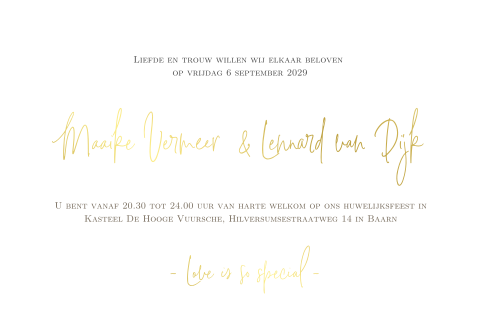 Liefde en trouw willen wij elkaar beloven
op vrijdag 6 september 2029
Maaike Vermeer & Lennard van Dijk
U bent vanaf 20.30 tot 24.00 uur van harte welkom op ons huwelijksfeest in
Kasteel De Hooge Vuursche, Hilversumsestraatweg 14 in Baarn
- Love is so special -